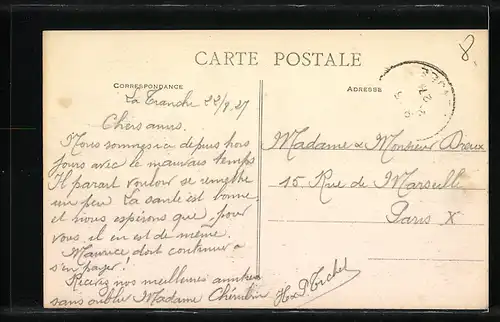 8.
CARTE POSTALE
CORRESPONDANCE
ADRESSE
La Tranche 22/9.27
Chers amis.
Nous sommes ici depuis trois
jours avec le mauvais temps
Il parait vouloir se remettre
un peu La santé est bonne
et nous espérons que, pour
vous, il en est de même.
Maurice doit continuer à
s'en payer!
Recevez nos meilleures amitiés
sans oublier Madame Chérubin
H & D Michel
Madame & Monsieur
15, Rue de Marseille
Paris X